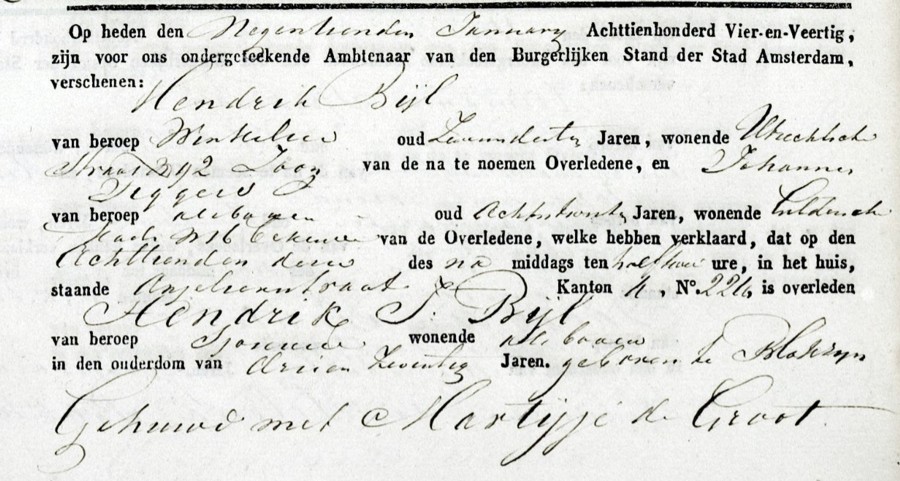 Op heden den Negentienden January Achttienhonderd Vier-en-Veertig,
zijn voor ons ondergeteekende Ambtenaar van den Burgerlijken Stand der Stad Amsterdam,
verschenen:
Hendrik Bijl
van beroep Winkelier oud Jaren, wonende Utrechtsche
Straat 292 Zoon van de na te noemen Overledene, en Johannes
Diggers
van beroep als boven oud Achtentwintig Jaren, wonende
Kade Bekende van de Overledene, welke hebben verklaard, dat op den
Achttienden dezer des na middags ten half twee ure, in het huis,
staande Anjelierstraat Kanton No. 224 is overleden
Hendrik S. Bijl
van beroep wonende als boven
in den ouderdom van drieen Zeventig Jaren. geboren te Blokzyl
Gehuwd met Martijje de Groot